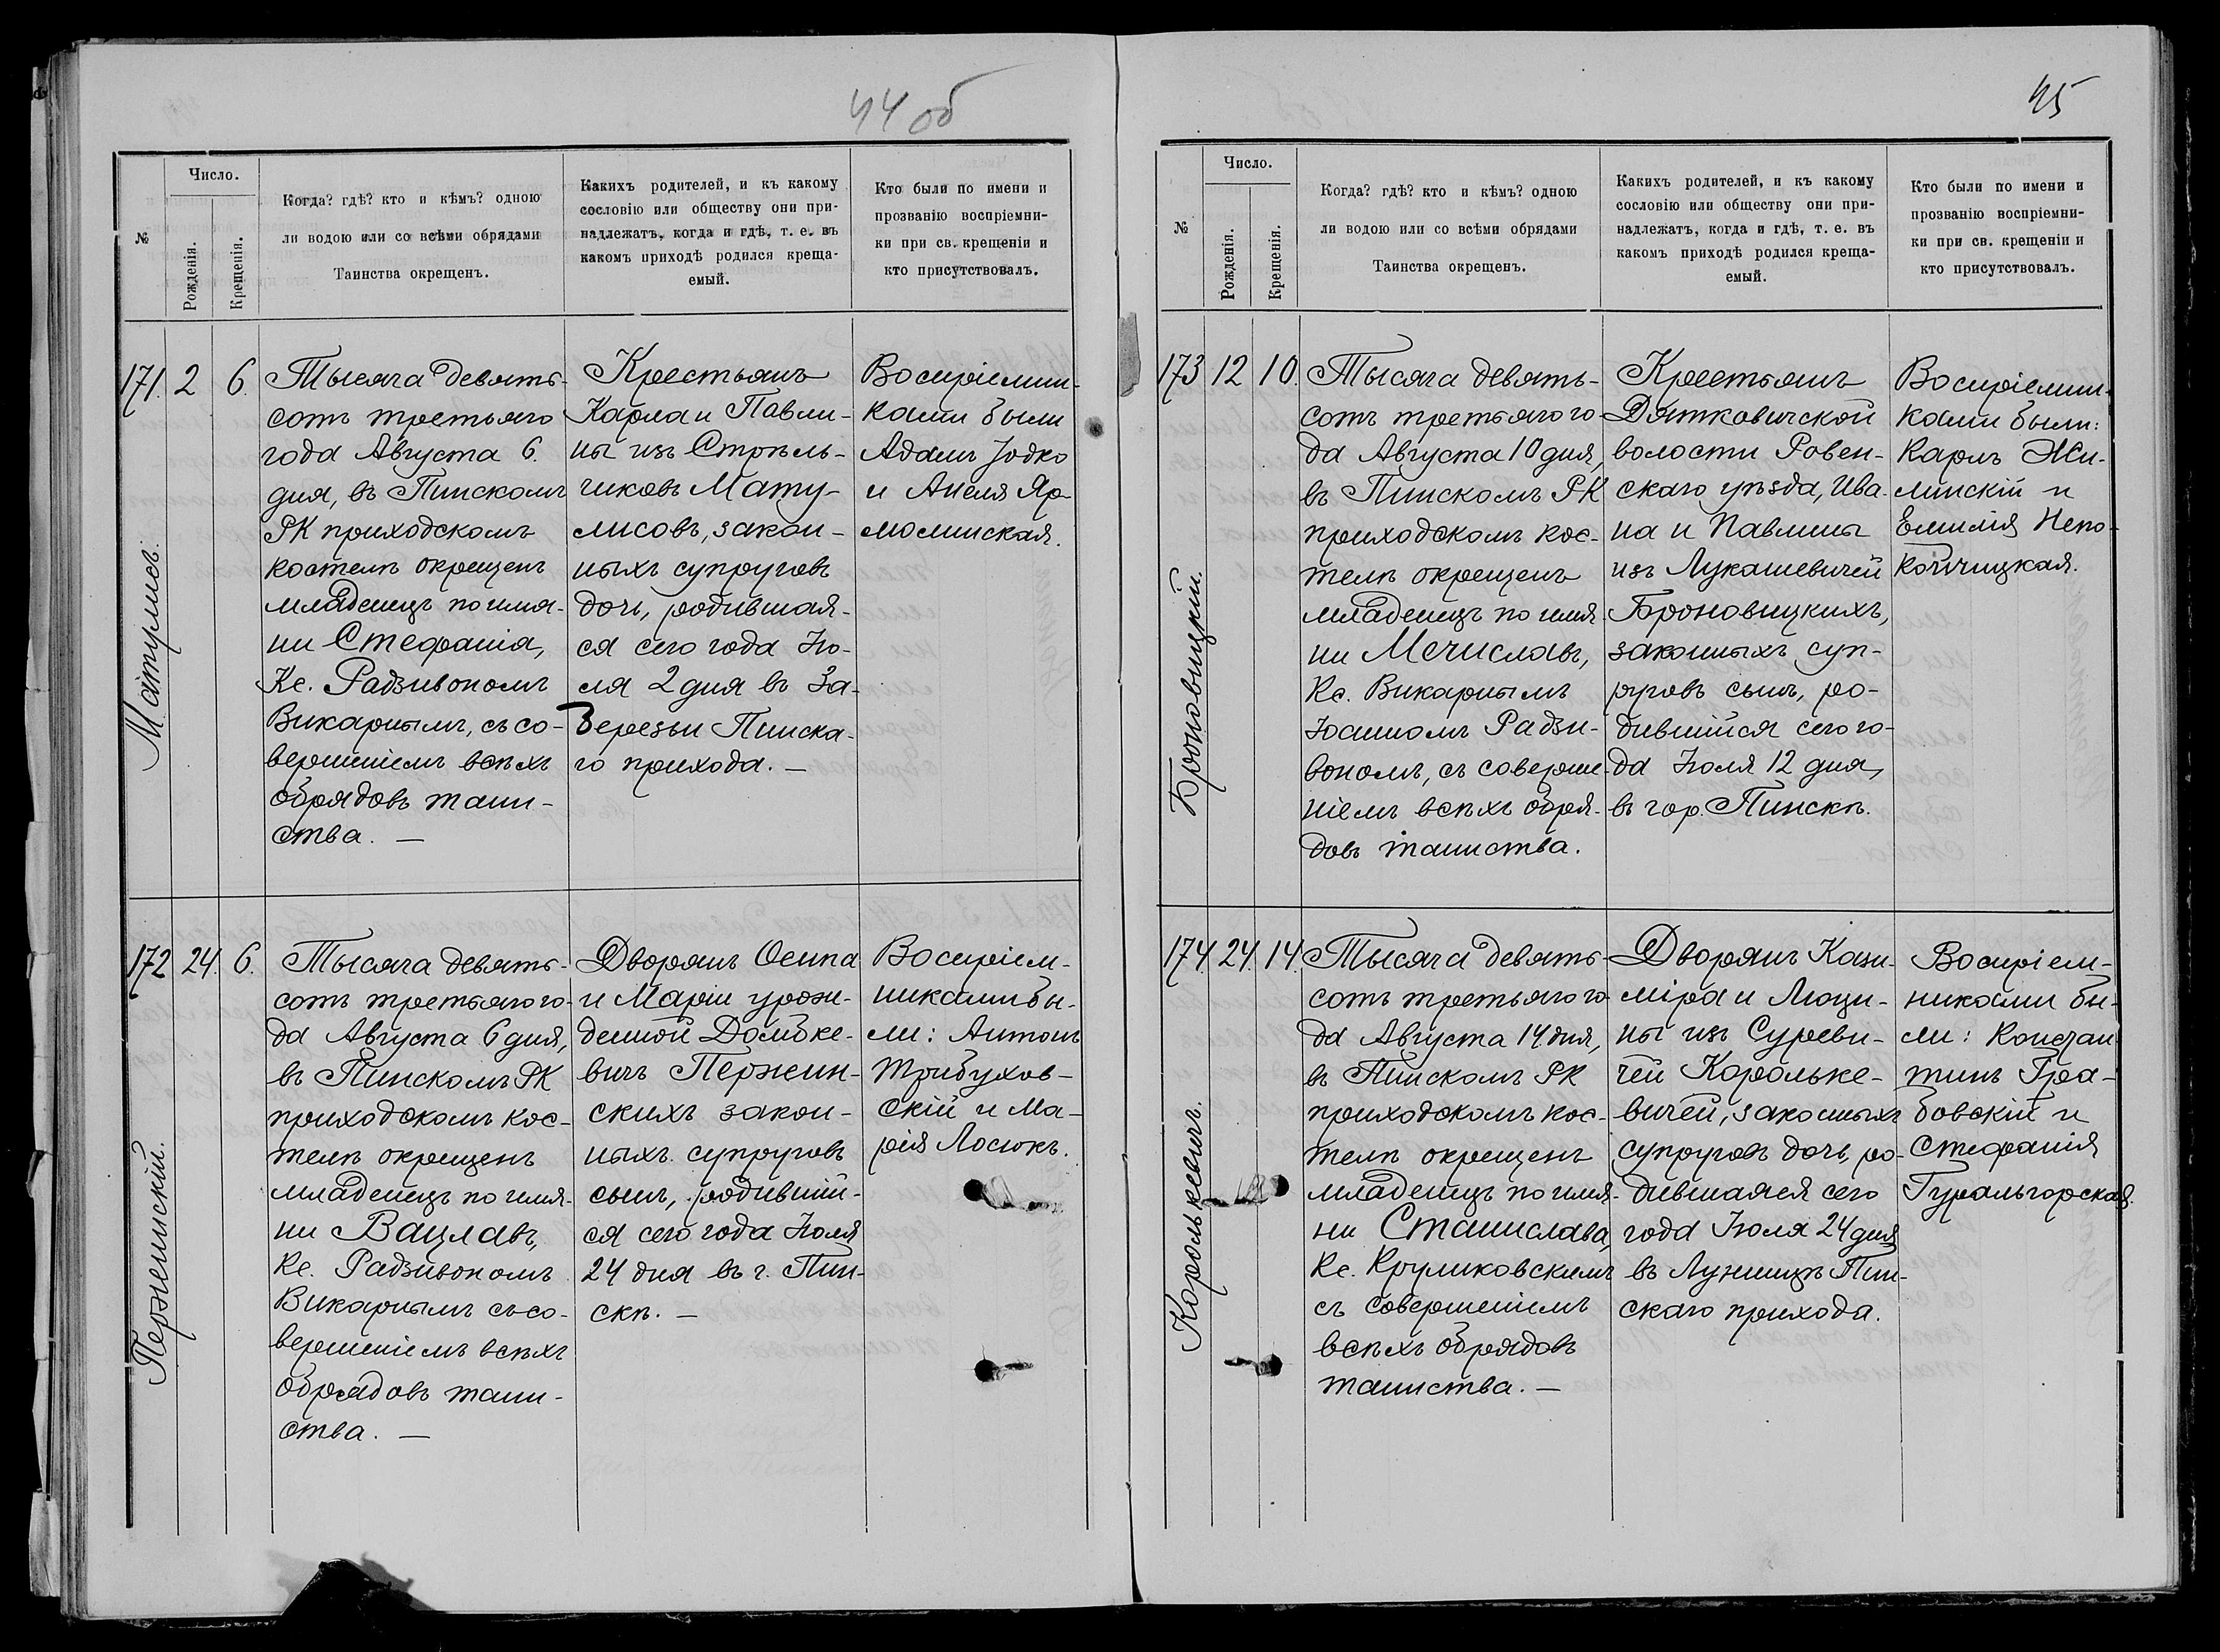 44 об
№
Число.
Рожденія.
Крещенія.
Когда? гдѣ? кто и кѣмъ? одною
ли водою или со всѣми обрядами
Таинства окрещенъ.
Какихъ родителей, и къ какому
сословію или обществу они при-
надлежатъ, когда и гдѣ, т. е. въ
какомъ приходѣ родился креща-
емый.
Кто были по имени и
прозванію воспріемни-
ки при св. крещеніи и
кто присутствовалъ.
171. 2 6.
Матулисъ.
Тысяча девять-
сотъ третьяго
года Августа 6.
дня, въ Пинскомъ
РК приходскомъ
костелѣ окрещенъ
младенецъ по имя-
ни Стефанія,
Кс. Радзивономъ
Викарнымъ, съ со-
вершеніемъ всѣхъ
обрядовъ таин-
ства. —
Крестьянъ
Карла и Павли-
ны изъ Стрѣль-
чиковъ Мату-
лисовъ, закон-
ныхъ супруговъ
дочь, родившая-
ся сего года Ію-
ля 2 дня въ За-
березьи Пинска-
го прихода. —
Воспріемни-
ками были
Адамъ Іодко
и Анеля Яр-
молинская.
172 24. 6.
Пержинскій.
Тысяча девять-
сотъ третьяго го-
да Августа 6 дня,
въ Пинскомъ РК
приходскомъ кос-
телѣ окрещенъ
младенецъ по имя-
ни Вацлавъ,
Кс. Радзивономъ
Викарнымъ съ со-
вершеніемъ всѣхъ
обрядовъ таин-
ства. —
Дворянъ Осипа
и Маріи урож-
денной Домбке-
вичъ Пержин-
скихъ закон-
ныхъ супруговъ
сынъ, родившій-
ся сего года Іюля
24 дня въ г. Пин-
скѣ. —
Воспріем-
никами бы-
ли: Антонъ
Трибухов-
скій и Ма-
рія Лосюкъ.
45
№
Число.
Рожденія.
Крещенія.
Когда? гдѣ? кто и кѣмъ? одною
ли водою или со всѣми обрядами
Таинства окрещенъ.
Какихъ родителей, и къ какому
сословію или обществу они при-
надлежатъ, когда и гдѣ, т. е. въ
какомъ приходѣ родился креща-
емый.
Кто были по имени и
прозванію воспріемни-
ки при св. крещеніи и
кто присутствовалъ.
173 12 10.
Броновицкій.
Тысяча девять-
сотъ третьяго го-
да Августа 10 дня,
въ Пинскомъ РК
приходскомъ кос-
телѣ окрещенъ
младенецъ по имя-
ни Мечиславъ,
Кс. Викарнымъ
Іоанномъ Радзи-
вономъ, съ соверше-
ніемъ всѣхъ обря-
довъ таинства.
Крестьянъ
Дятковичской
волости Ровен-
скаго уѣзда, Ива-
на и Павлины
изъ Лукашевичей
Броновицкихъ,
законныхъ суп-
руговъ сынъ, ро-
дившійся сего го-
да Іюля 12 дня,
въ гор. Пинскѣ.
Воспріемни-
ками были:
Карлъ Жи-
линскій и
Емилія Непо-
койчицкая.
174 24. 14.
Королькевичъ.
Тысяча девять-
сотъ третьяго го-
да Августа 14 дня,
въ Пинскомъ РК
приходскомъ кос-
телѣ окрещенъ
младенецъ по имя-
ни Станислава,
Кс. Круликовскимъ
съ совершеніемъ
всѣхъ обрядовъ
таинства. —
Дворянъ Кази-
міра и Люци-
ны изъ Суреви-
чей Королькe-
вичей, законныхъ
супруговъ дочь, ро-
дившаяся сего
года Іюля 24 дня
въ Лунинцѣ Пин-
скаго прихода.
Воспріем-
никами бы-
ли: Констан
тинъ Гра-
бовскій и
Стефанія
Гуральгорская.